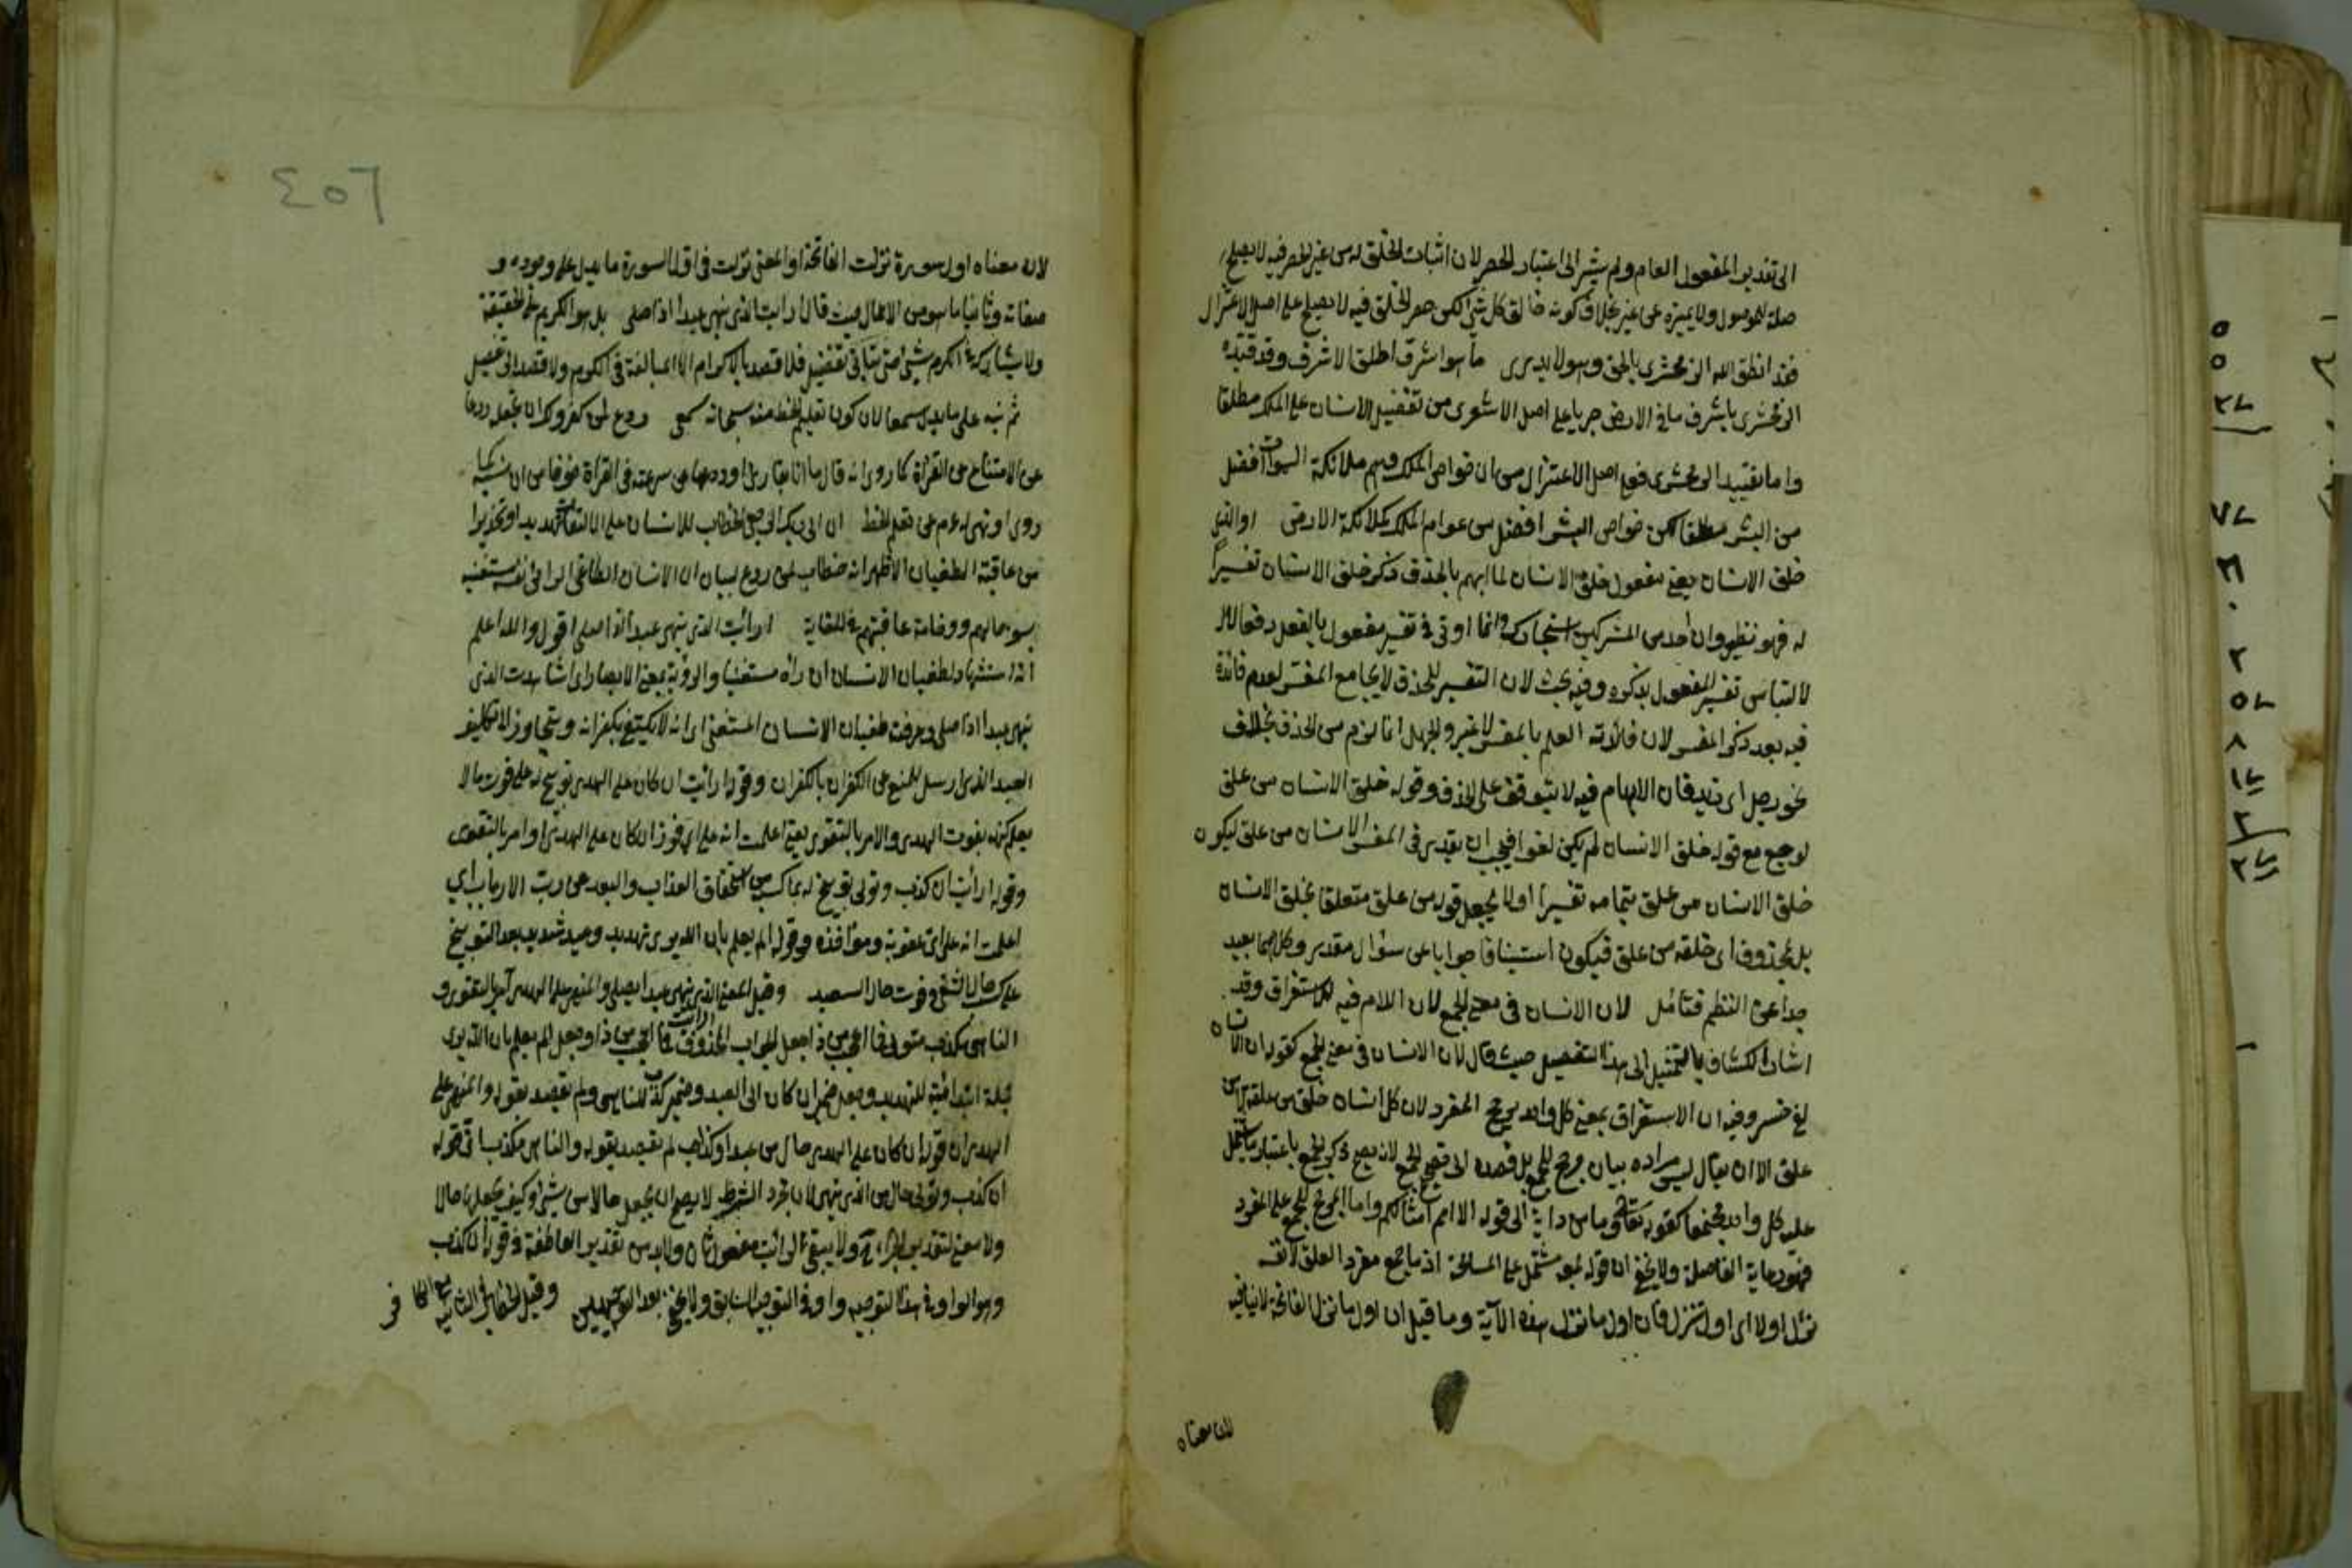 الى تقدير المفعول العام ولم يشر الى اعتبار الحصر لان اثبات الخلق له من غير الحصر فيه لا يصلح
صلة للموصول ولا يميزه عن غيره بخلاف كونه خالق كل شئ لكن حصر الخلق فيه لا يصلح على اصل الاعتزال
فقد انطق الله الزمخشرى بالحق وهو لا يدرى ما هو اشرف اطلق الاشرف وقد قيده
الزمخشرى باشرف ما فى الارض جريا على اصل الاشعرى من تفضيل الانسان على الملك مطلقا
واما تقييد الزمخشرى فعلى اصل الاعتزال من ان خواص الملك وهم ملائكة السموات افضل
من البشر مطلقا لكن خواص البشر افضل من عوام الملك كملائكة الارض او الذى
خلق الانسان يعنى مفعول خلق الانسان لما ابهم بالحذف ذكر خلق الانسان تفسيرا
له فهو نظير وان احد من المشركين استجارك وانما اوتى فى تفسير مفعول بالفعل دفعا
لالتباس تفسير المفعول بذكره وفيه بحث لان التفسير للحذف لا يجامع المفسر لعدم فائدة
فيه بعد ذكر المفسر لان فائدته العلم بالمفسر لا غير والجهل انما لزم من الحذف بخلاف
نحو رجل اى زيد فان الابهام فيه لا يتوقف على الحذف وقوله خلق الانسان من علق
لو جمع مع قوله خلق الانسان لم يكن لغوا فيجب ان يقدر فى المفسر الانسان من علق ليكون
خلق الانسان من علق بتمامه تفسيرا او لا يجعل قوله من علق متعلقا بخلق الانسان
بل بمحذوف اى خلقه من علق فيكون استينافا جوابا عن سؤال مقدر وكلاهما بعيد
جدا عن النظم فتأمل لان الانسان فى معنى الجمع لان اللام فيه للاستغراق وقد
اشار الكشاف بالتمثيل الى هذا التفصيل حيث قال لان الانسان فى معنى الجمع كقوله ان الانسان
لفى خسر وفيه ان الاستغراق بمعنى كل واحد يرجح المفرد لان كل انسان خلق من علقة لا من
علق الا ان يقال ليس مراده بيان مرجح للجمع بل قصده الى تصحيح الجمع لانه يصح ذكر الجمع باعتبار ما يشتمل
عليه كل واحد مجتمعا كقوله تعالى وما من دابة الى قوله الا امم امثالكم واما المرجح للجمع على المفرد
فهو رعاية الفاصلة ولا يخفى ان قوله جمعه مشتمل على المسامحة اذ ما جمع مفرد العلق لانه
نزل اولا اى اول تنزل فان اول ما نزل هذه الآية وما قيل ان اول ما نزل الفاتحة لا ينافيه
لان معناه
٤٥٦
لان معناه اول سورة نزلت الفاتحة او المعنى نزلت فى اول السورة ما يدل على وجوده و
صفاته وثانيا ما هو من الاعمال حيث قال ارايت الذى ينهى عبدا اذا صلى بل هو الكريم على الحقيقة
ولا يشاركه فى الكرم شئ حتى يتأتى تفضيل فلا قصد بالاكرام الا المبالغة فى الكرم ولا قصد الى تفضيل
ثم نبه على ما يدل سمعا لان كون تعليم الخط منه سبحانه سمعى ردع لمن كفر ولك ان تجعله ردعا
عن الامتناع عن القراءة كما روى انه قال ما انا بقارئ او ردعا عن سرعته فى القراءة خوفا من ان ينسى كما
روى او نهى له عم عن تعلم الخط ان الى ربك الرجعى الخطاب للانسان على الالتفات تهديدا وتحذيرا
من عاقبة الطغيان الاظهر انه خطاب لمن ردع لبيان ان الانسان الطاغى الرائى نفسه مستغنيه
بسوء حالهم ووخامة عاقبتهم فى الغاية ارأيت الذى ينهى عبدا اذا صلى اقول والله اعلم
انه استشهاد لطغيان الانسان ان رآه مستغنيا والرؤية بمعنى الابصار اى اشاهدت الذى
ينهى عبدا اذا صلى وعرفت طغيان الانسان المستغنى اى انه لا يكتفى بكفرانه ويتجاوز لا تكليف
العبد الذى ارسل للمنع عن الكفران بالكفران وقوله ارأيت ان كان على الهدى توبيخ له على فوت ما لا
يعلم كنهه بفوت الهدى والامر بالتقوى يعنى اعلمت انه على اى فوز ان كان على الهدى او امر بالتقوى
وقوله ارأيت ان كذب وتولى توبيخ له بما كسب من استحقاق العذاب والبعد عن رب الارباب اى
اعلمت انه على اى عقوبة ومؤاخذة وقوله الم يعلم بان الله يرى تهديد وعيد شديد بعد التوبيخ
على كسب حال الشقى وفوت حال السعيد وقيل المعنى الذى ينهى عبدا يصلى والمنهى على الهدى آمر بالتقوى و
الناهى مكذب متولى فما اعجب من ذا جعل الجواب المحذوف فما اعجب من ذا وجعل الم يعلم بان الله يرى
جملة ابتدائية للتهديد وجعل ضمير ان كان الى العبد وضمير كذب للناهى ولم يقصد بقوله والمنهى على
الهدى ان قوله ان كان على الهدى حال من عبدا وكذلك لم يقصد بقوله والناهى مكذب ان قوله
ان كذب وتولى حال من الذى ينهى لان مجرد الشرط لا يصح ان يجعل حالا من شئ وكيف يجعل حالا
ولا معنى لتقدير الجزاء ولا يبقى لارأيت مفعول ثان ولابد من تقدير العاطفة فى قوله ان كذب
وهو الواو فى هذا التوجيه واو فى التوجيه السابق ولا يخفى بعد التوجيهين وقيل الخطاب فى الثانية مع الكافر